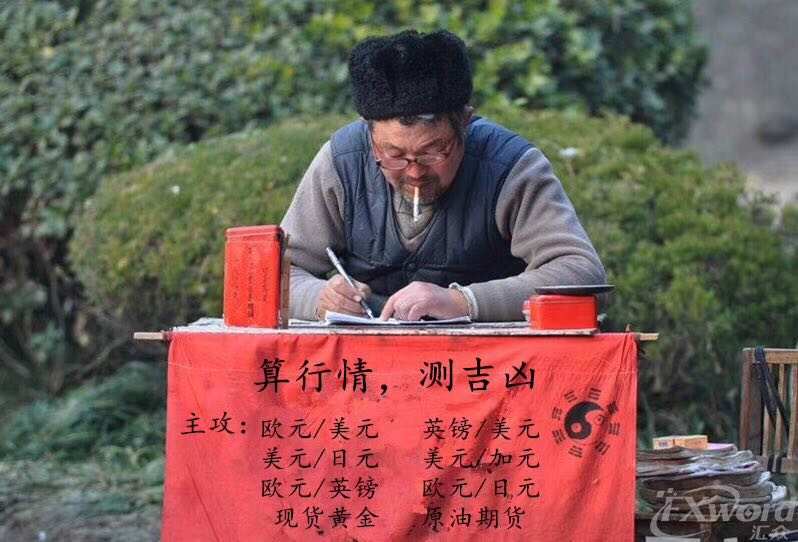 算行情，测吉凶
主攻：欧元/美元 英镑/美元
美元/日元 美元/加元
欧元/英镑 欧元/日元
现货黄金 原油期货
FXword
汇众